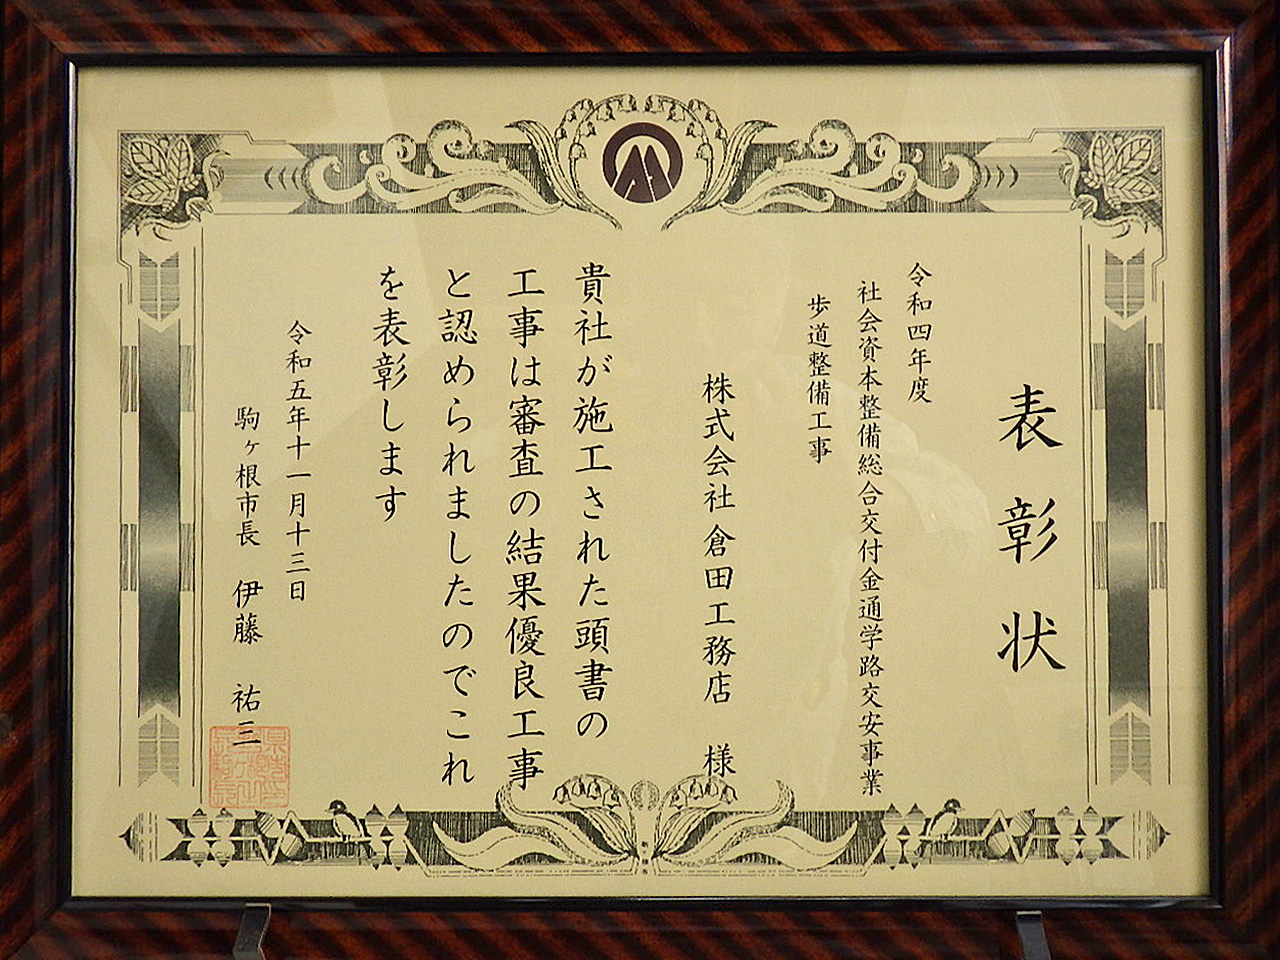 表彰状
令和四年度
社会資本整備総合交付金通学路交安事業
歩道整備工事
株式会社 倉田工務店 様
貴社が施工された頭書の
工事は審査の結果優良工事
と認められましたのでこれ
を表彰します
令和五年十一月十三日
駒ヶ根市長 伊藤 祐三